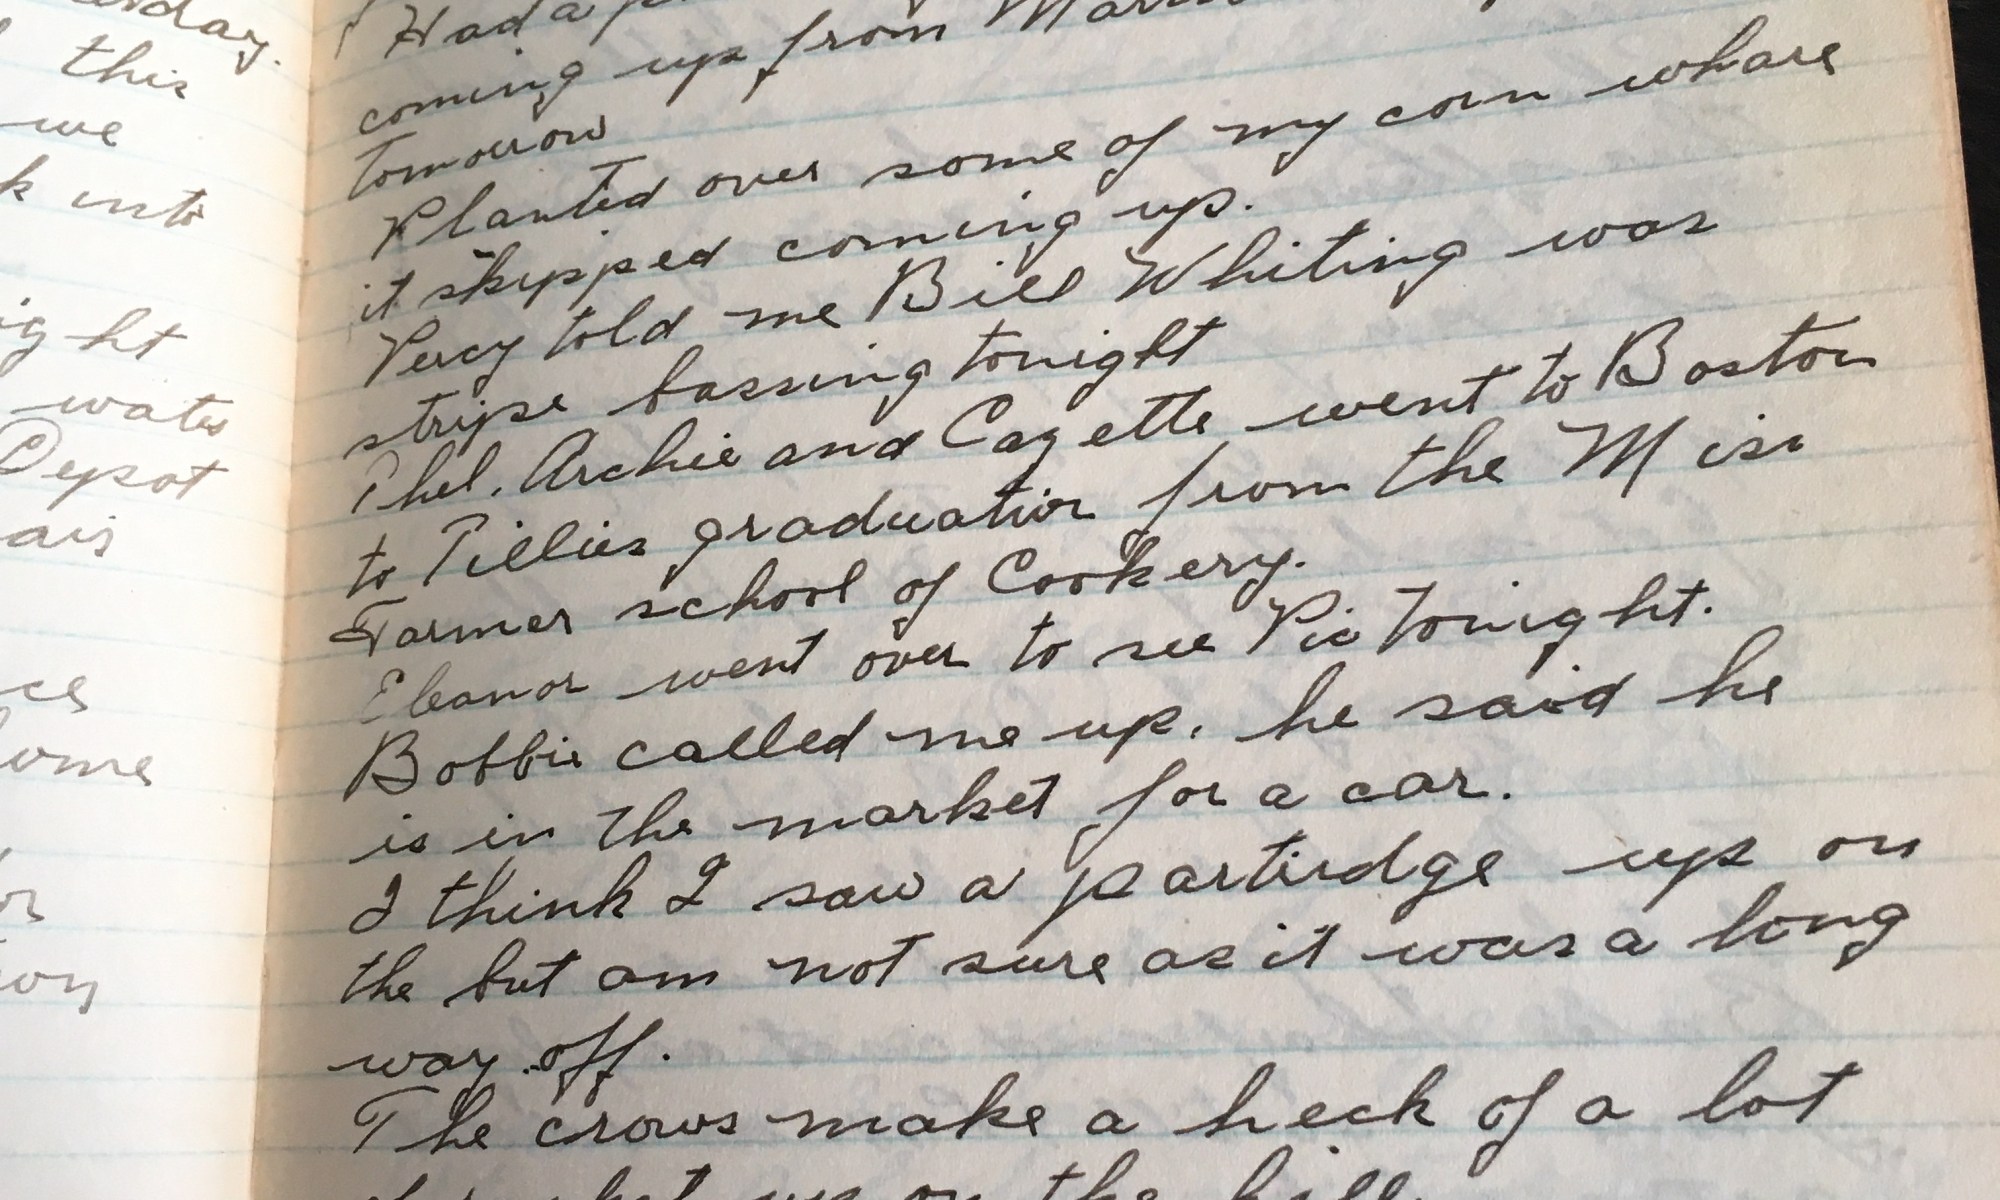 this
we
into
Depot
Had a
coming up from
tomorrow
Planted over some of my corn whare
it skipped coming up.
Percy told me Bill Whiting was
stripe bassing tonight
Phil, Archie and Cozette went to Boston
to Tillies graduation from the Miss
Farmer school of Cookery.
Eleanor went over to see Pie tonight.
Bobbie called me up, he said he
is in the market for a car.
I think I saw a partirdge up on
the but am not sure as it was a long
way off.
The crows make a heck of a lot
up on the hill